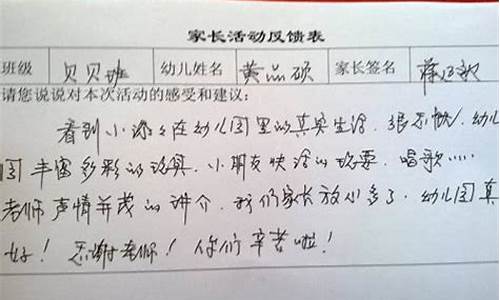 家长活动反馈表
班级 贝贝班 幼儿姓名 黄品硕 家长签名
请您说说对本次活动的感受和建议:
看到小孩在幼儿园里的真实生活,很不错,幼儿
园丰富多彩的玩具,小朋友快活的玩耍,唱歌……
老师声情并茂的讲介,我们家长放心多了,幼儿园真
好!感谢老师!你们辛苦啦!